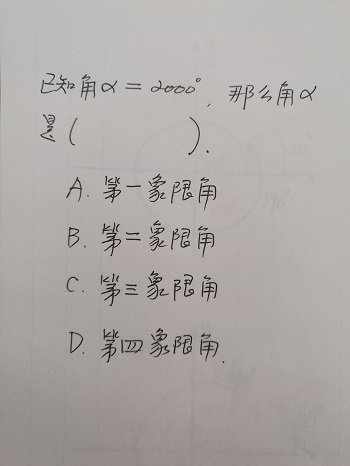 已知角α=2000°，那么角α
是(        ).
A. 第一象限角
B. 第二象限角
C. 第三象限角
D. 第四象限角.